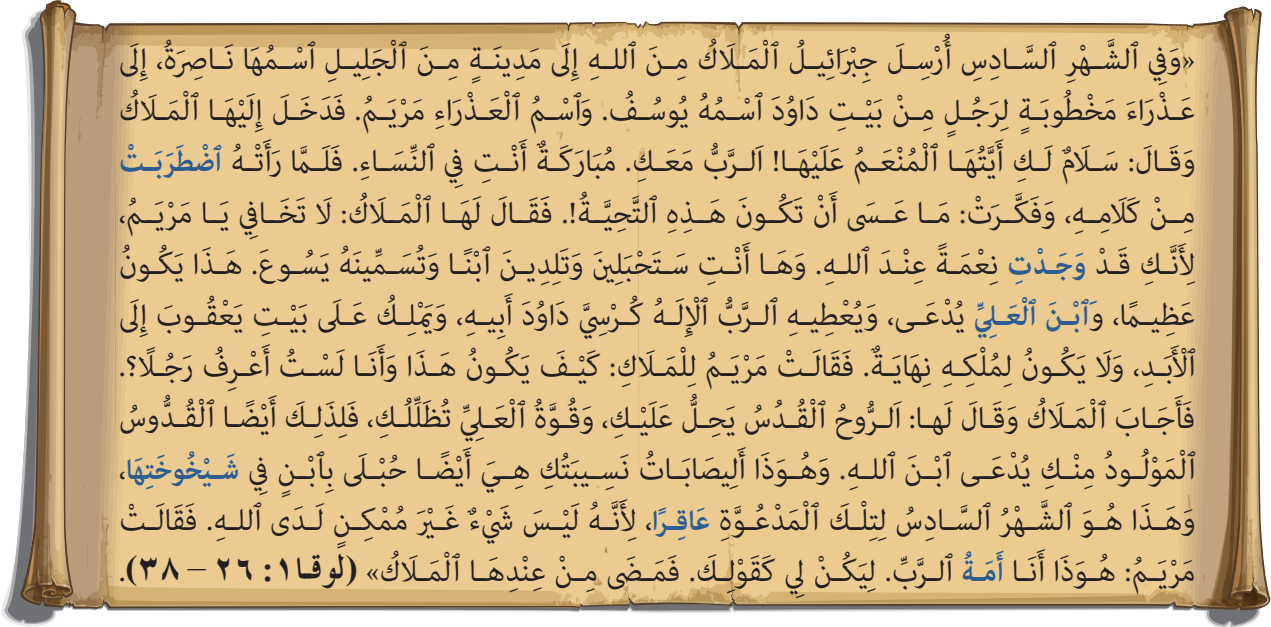 «وَفِي ٱلشَّهْرِ ٱلسَّادِسِ أُرْسِلَ جِبْرَائِيلُ ٱلْمَلَاكُ مِنَ ٱللهِ إِلَى مَدِينَةٍ مِنَ ٱلْجَلِيلِ ٱسْمُهَا نَاصِرَةُ، إِلَى
عَذْرَاءَ مَخْطُوبَةٍ لِرَجُلٍ مِنْ بَيْتِ دَاوُدَ ٱسْمُهُ يُوسُفُ. وَٱسْمُ ٱلْعَذْرَاءِ مَرْيَمُ. فَدَخَلَ إِلَيْهَا ٱلْمَلَاكُ
وَقَالَ: سَلَامٌ لَكِ أَيَّتُهَا ٱلْمُنْعَمُ عَلَيْهَا! اَلرَّبُّ مَعَكِ. مُبَارَكَةٌ أَنْتِ فِي ٱلنِّسَاءِ. فَلَمَّا رَأَتْهُ ٱضْطَرَبَتْ
مِنْ كَلَامِهِ، وَفَكَّرَتْ: مَا عَسَى أَنْ تَكُونَ هَذِهِ ٱلتَّحِيَّةُ!. فَقَالَ لَهَا ٱلْمَلَاكُ: لَا تَخَافِي يَا مَرْيَمُ،
لِأَنَّكِ قَدْ وَجَدْتِ نِعْمَةً عِنْدَ ٱللهِ. وَهَا أَنْتِ سَتَحْبَلِينَ وَتَلِدِينَ ٱبْنًا وَتُسَمِّينَهُ يَسُوعَ. هَذَا يَكُونُ
عَظِيمًا، وَٱبْنَ ٱلْعَلِيِّ يُدْعَى، وَيُعْطِيهِ ٱلرَّبُّ ٱلْإِلَهُ كُرْسِيَّ دَاوُدَ أَبِيهِ، وَيَمْلِكُ عَلَى بَيْتِ يَعْقُوبَ إِلَى
ٱلْأَبَدِ، وَلَا يَكُونُ لِمُلْكِهِ نِهَايَةٌ. فَقَالَتْ مَرْيَمُ لِلْمَلَاكِ: كَيْفَ يَكُونُ هَذَا وَأَنَا لَسْتُ أَعْرِفُ رَجُلًا؟.
فَأَجَابَ ٱلْمَلَاكُ وَقَالَ لَها: اَلرُّوحُ ٱلْقُدُسُ يَحِلُّ عَلَيْكِ، وَقُوَّةُ ٱلْعَلِيِّ تُظَلِّلُكِ، فَلِذَلِكَ أَيْضًا ٱلْقُدُّوسُ
ٱلْمَوْلُودُ مِنْكِ يُدْعَى ٱبْنَ ٱللهِ. وَهُوَذَا أَلِيصَابَاتُ نَسِيبَتُكِ هِيَ أَيْضًا حُبْلَى بِٱبْنٍ فِي شَيْخُوخَتِهَا،
وَهَذَا هُوَ ٱلشَّهْرُ ٱلسَّادِسُ لِتِلْكَ ٱلْمَدْعُوَّةِ عَاقِرًا، لِأَنَّهُ لَيْسَ شَيْءٌ غَيْرَ مُمْكِنٍ لَدَى ٱللهِ. فَقَالَتْ
مَرْيَمُ: هُوَذَا أَنَا أَمَةُ ٱلرَّبِّ. لِيَكُنْ لِي كَقَوْلِكَ. فَمَضَى مِنْ عِنْدِهَا ٱلْمَلَاكُ» (لوقا١: ٢٦ – ٣٨).